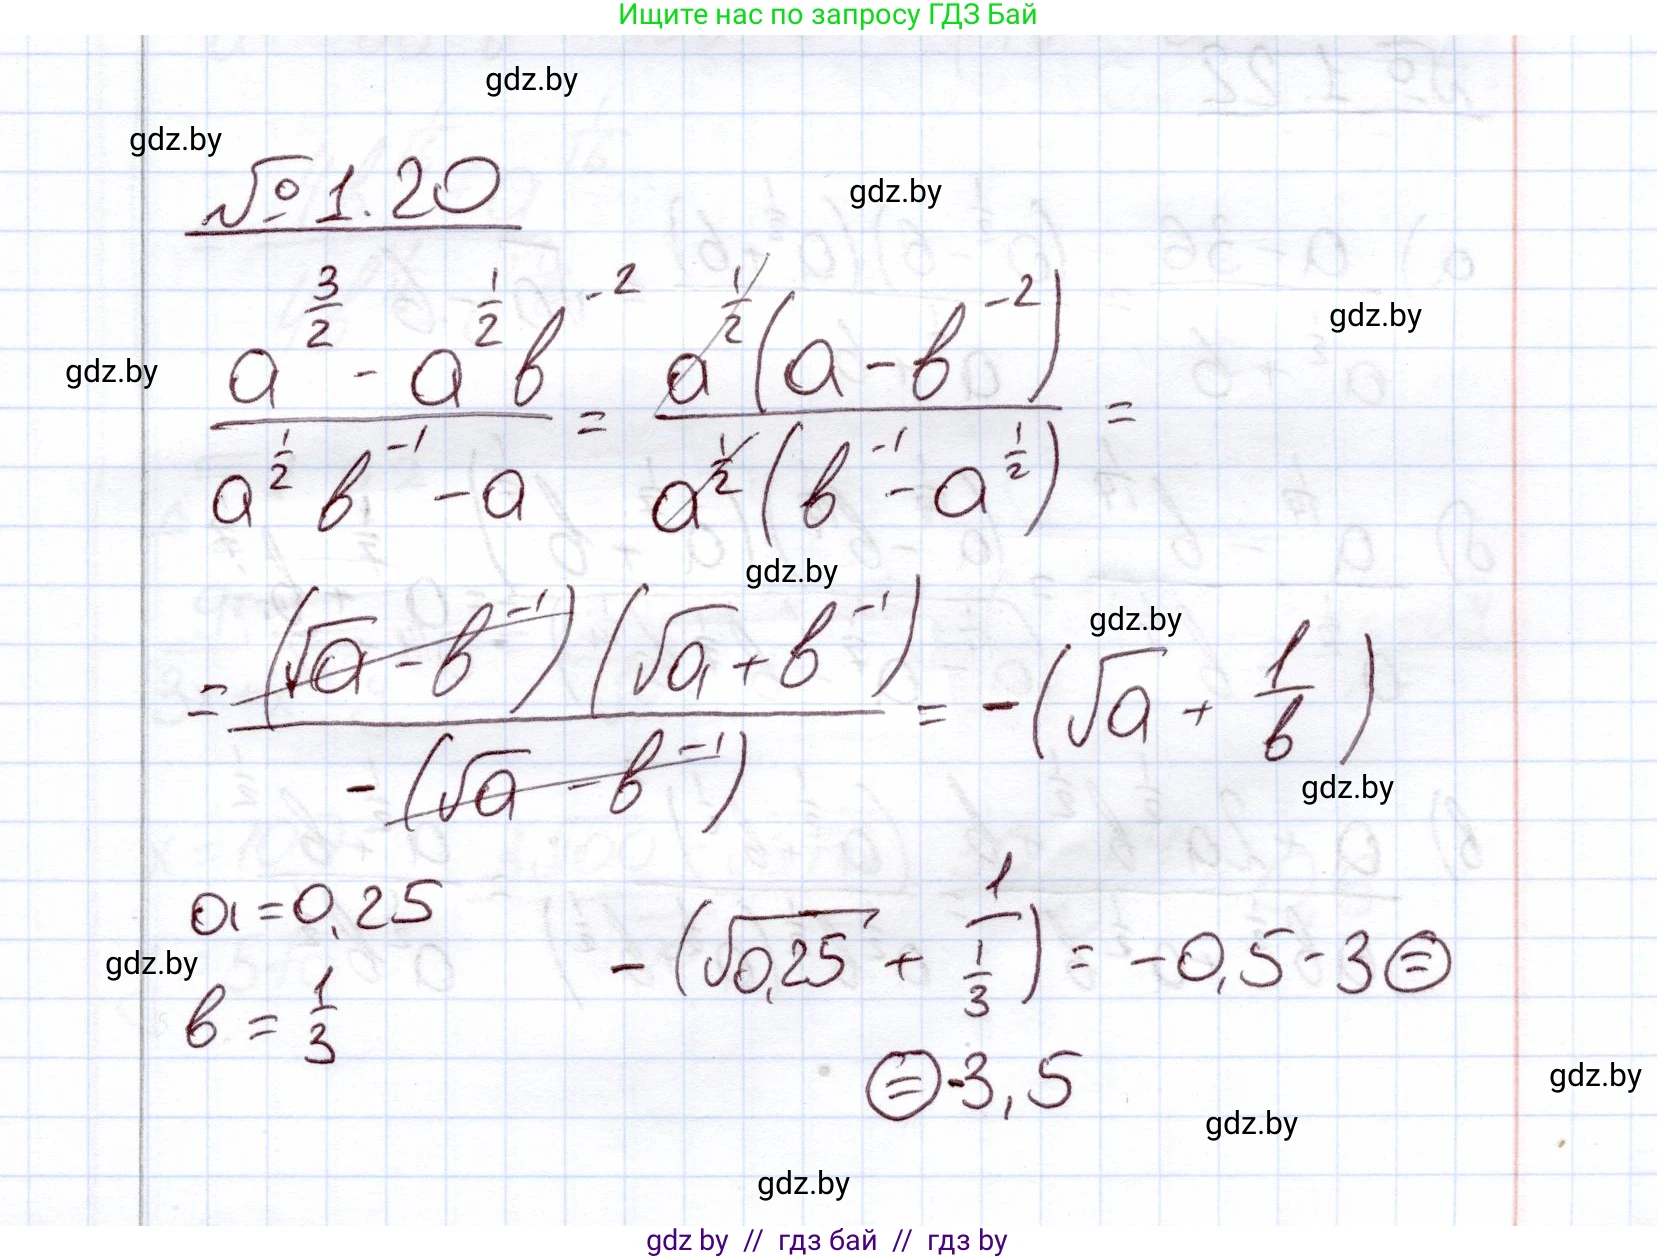 Ищите нас по запросу ГДЗ Бай
gdz.by
gdz.by
gdz.by
№ 1.20
gdz.by
gdz.by
(a^(3/2) - a^(1/2) b^(-2)) / (a^(1/2) b^(-1) - a) = (a^(1/2) (a - b^(-2))) / (a^(1/2) (b^(-1) - a^(1/2))) =
gdz.by
gdz.by
= ((√a - b^(-1)) (√a + b^(-1))) / (-(√a - b^(-1))) = -(√a + 1/b)
gdz.by
a = 0,25
gdz.by
b = 1/3
-(√0,25 + 1/(1/3)) = -0,5 - 3 =
= -3,5
gdz.by
gdz.by
gdz.by
gdz by // гдз бай // гдз by